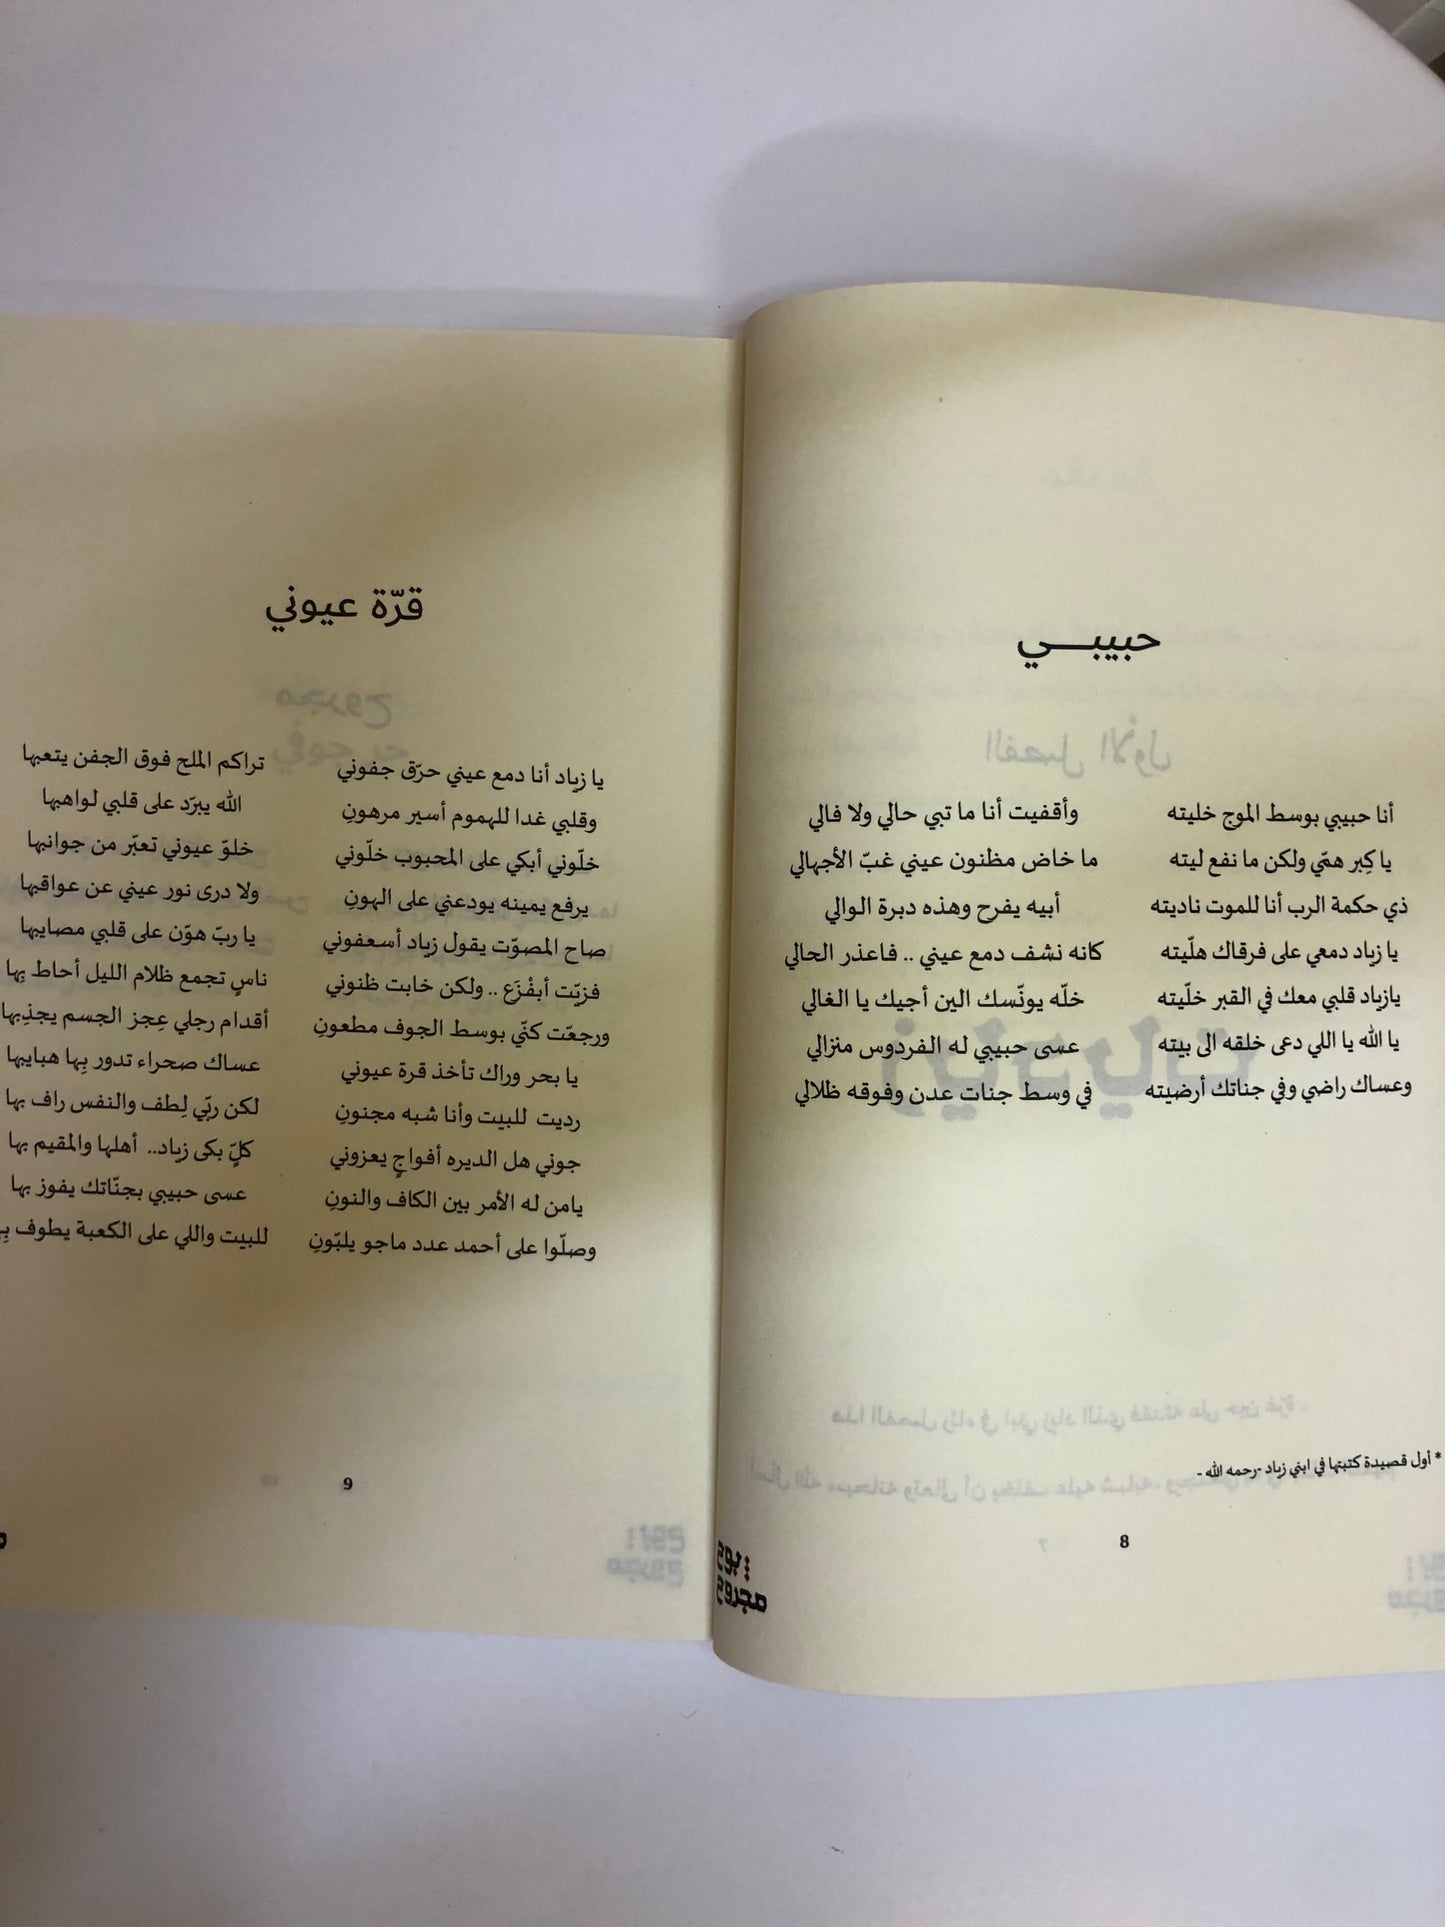 حبيبـــي
أنا حبيبي بوسط الموج خليته وأقفيت أنا ما تبي حالي ولا فالي
يا كِبر همّي ولكن ما نفع ليته ما خاض مظنون عيني غبّ الأجهالي
ذي حكمة الرب أنا للموت ناديته أبيه يفرح وهذه دبرة الوالي
يا زياد دمعي على فرقاك هلّيته كانه نشف دمع عيني .. فاعذر الحالي
يازياد قلبي معك في القبر خلّيته خلّه يونّسك الين أجيك يا الغالي
يا الله يا اللي دعى خلقه الى بيته عسى حبيبي له الفردوس منزالي
وعساك راضي وفي جناتك أرضيته في وسط جنات عدن وفوقه ظلالي
* أول قصيدة كتبتها في ابني زياد -رحمه الله -
8
بوح
مجروح
قرّة عيوني
يا زياد أنا دمع عيني حرّق جفوني تراكم الملح فوق الجفن يتعبها
وقلبي غدا للهموم أسير مرهونِ الله يبرّد على قلبي لواهبها
خلّوني أبكي على المحبوب خلّوني خلوّ عيوني تعبّر من جوانبها
يرفع يمينه يودعني على الهونِ ولا درى نور عيني عن عواقبها
صاح المصوّت يقول زياد أسعفوني يا ربّ هوّن على قلبي مصايبها
فزيّت أبفْزَع .. ولكن خابت ظنوني ناسٍ تجمع ظلام الليل أحاط بِها
ورجعّت كنّي بوسط الجوف مطعونِ أقدام رجلي عِجز الجسم يجذِبها
يا بحر وراك تأخذ قرة عيوني عساك صحراء تدور بِها هبايبها
رديت للبيت وأنا شبه مجنونِ لكن ربّي لِطف والنفس راف بها
جوني هل الديره أفواجٍ يعزوني كلٍّ بكى زياد.. أهلها والمقيم بها
يامن له الأمر بين الكاف والنونِ عسى حبيبي بجنّاتك يفوز بها
وصلّوا على أحمد عدد ماجو يلبّونِ للبيت واللي على الكعبة يطوف
9